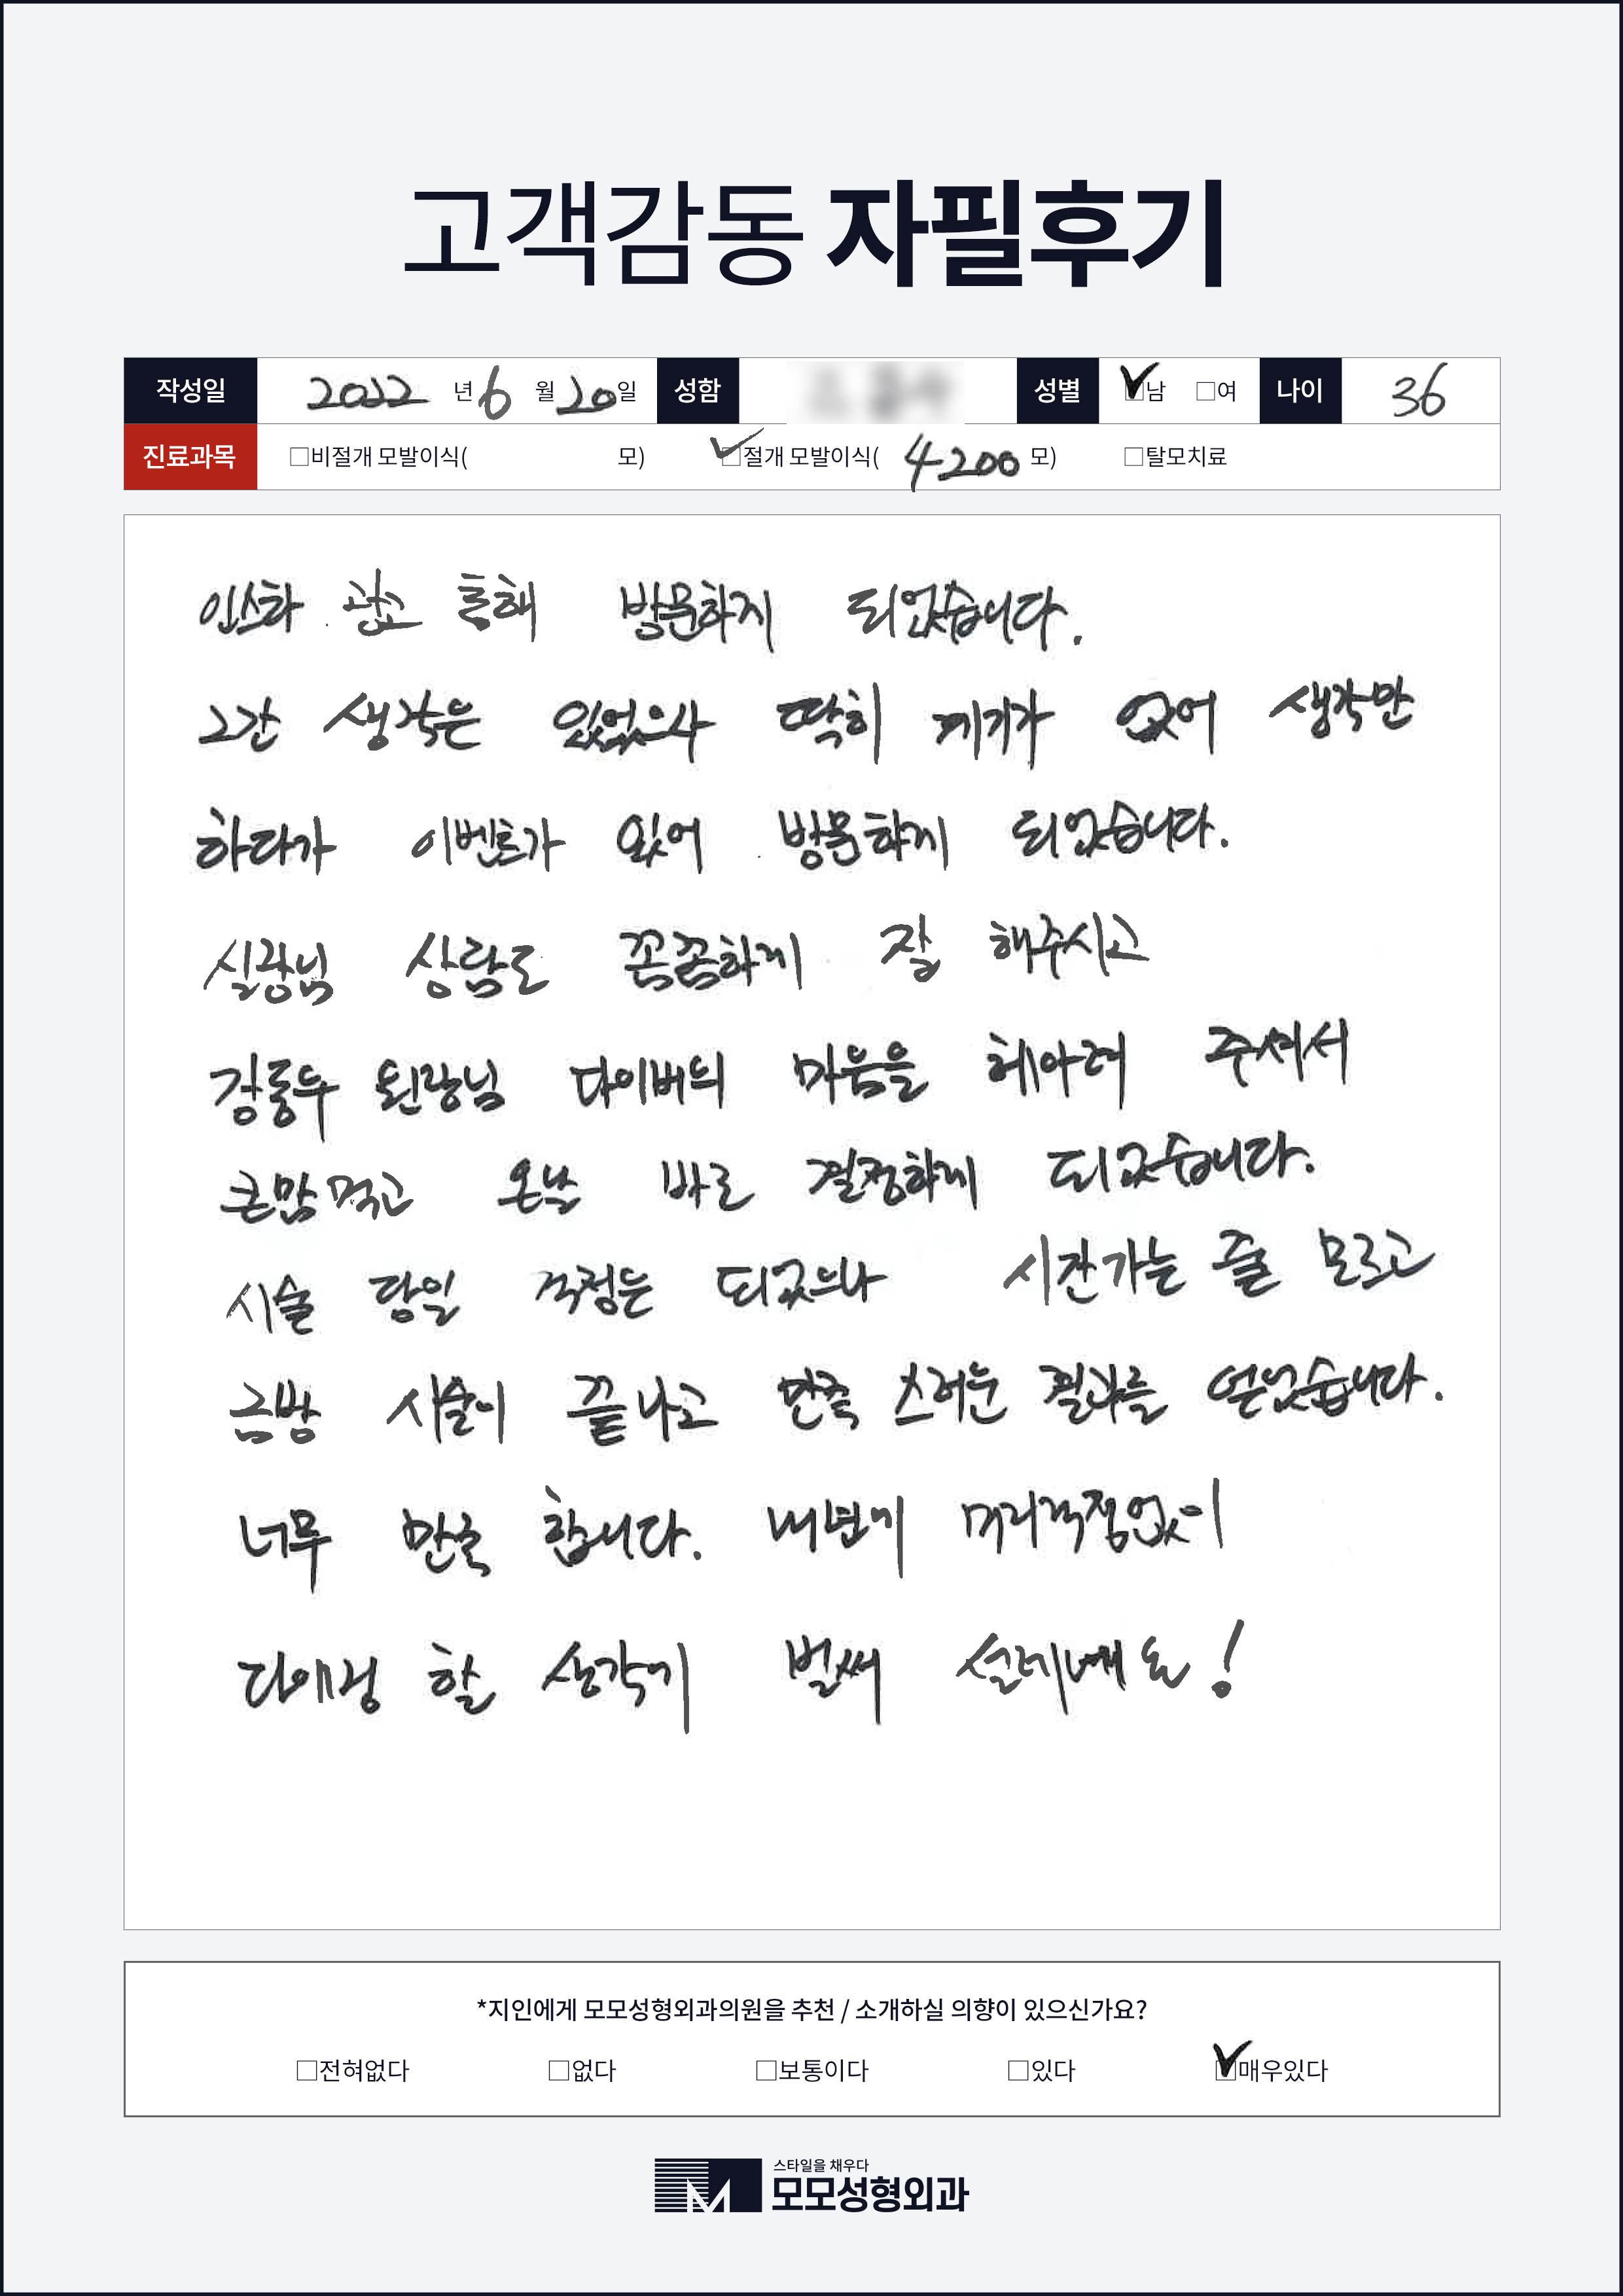 고객감동 자필후기
작성일 2022 년 6 월 20 일 성함 성별 ☑남 □여 나이 36
진료과목 □비절개 모발이식( 모) ☑절개 모발이식( 4200 모) □탈모치료
인스타 광고 통해 방문하지 되었습니다.
그간 생각은 있었으나 딱히 계기가 없어 생각만
하다가 이벤트가 있어 방문하게 되었습니다.
실장님 상담도 꼼꼼하게 잘 해주시고
김동두 원장님 다이버의 마음을 헤아려 주셔서
큰맘먹고 온날 바로 결정하게 되었습니다.
시술 당일 걱정은 되었으나 시간가는 줄 모르고
금방 시술이 끝나고 만족 스러운 결과를 얻었습니다.
너무 만족 합니다. 내년에 머리걱정없이
다이빙 할 생각이 벌써 설레네요!
*지인에게 모모성형외과의원을 추천 / 소개하실 의향이 있으신가요?
□전혀없다 □없다 □보통이다 □있다 ☑매우있다
스타일을 채우다
모모성형외과